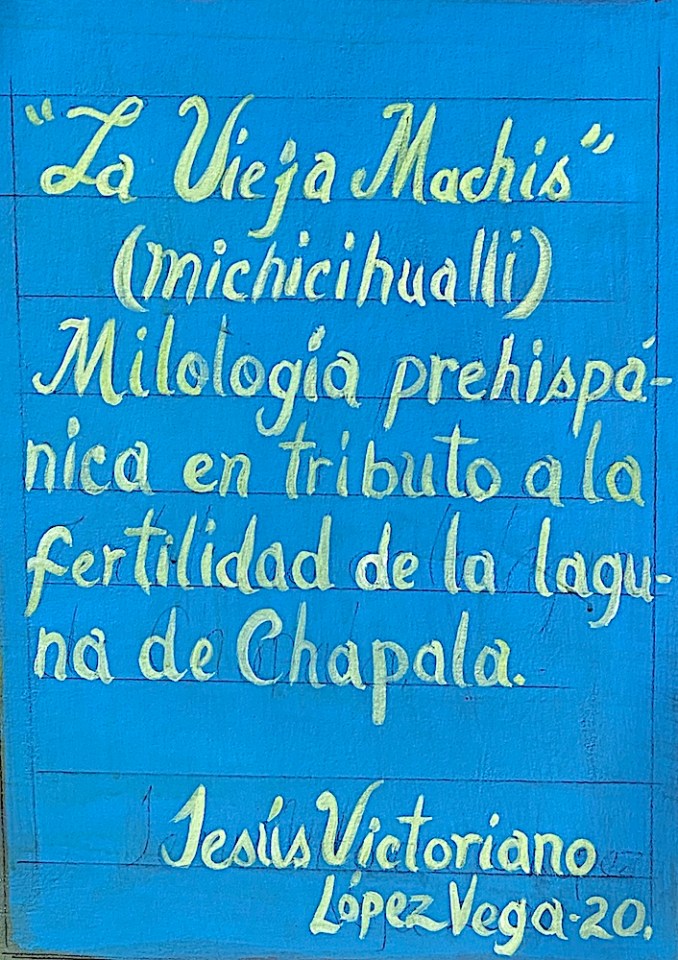 "La Vieja Machis"
(michicihualli)
Milología prehispá-
nica en tributo a la
fertilidad de la lagu-
na de Chapala.
Jesús Victoriano
López Vega-20.